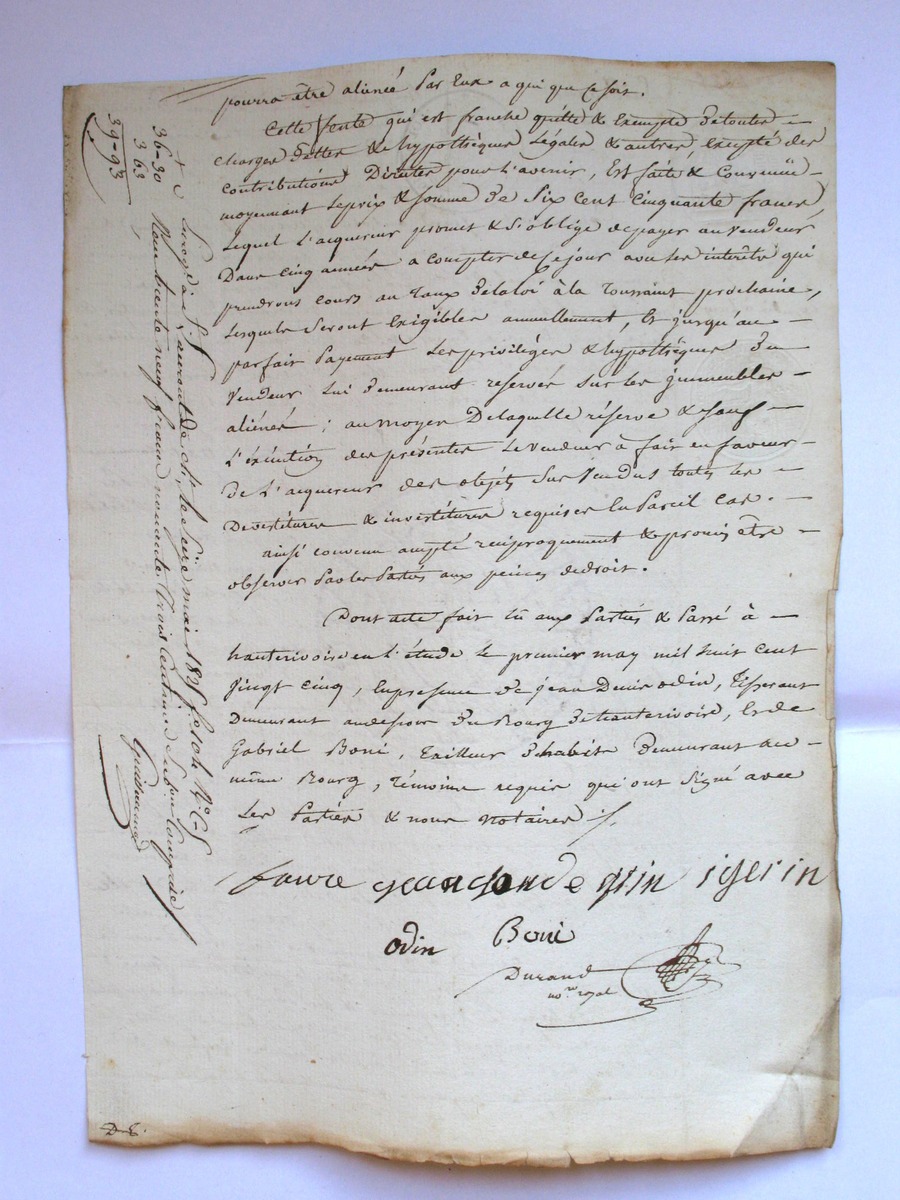 pourra être aliené Par Eux a qui que ce soit.
Cette Vente qui est franche quitte & Exempte detoutes
charges dettes & hypothèques Légales & autres, Excepté des
contributions Directes pour l'avenir, Est faite & Convenüe
moyennant Leprix & somme de Six Cent Cinquante francs,
Lequel L'acquereur promet & S'oblige depayer au Vendeur
Dans Cinq années a compter dece jour avec les intérêts qui
prendrons cours au Taux dela loi à la Toussaint prochaine,
Lesquels Seront Exigibles annuellement, Et jusqu'au
parfait Payement Les privilèges & hypothèques du
Vendeur Lui demeurant reservés Sur Les jmmeubles
aliénés ; au moyen De laquelle réserve & sauf
L'éxécution des présentes Le vendeur à fait en faveur
De L'acquereur des objets Sus Vendus toutes les
Devestitures & investitures requises En Pareil cas.
ainsi convenu accepté reciproquement & promis être
observé Par les Parties aux peines de droit.
Dont acte fait Lü aux Parties & Passé à
hauterivoire en L'étude Le premier may mil huit Cent
Vingt Cinq, En presence de jean Denis odin, Tisserant
Demeurant au dessous du Bourg de hauterivoire, Et de
Gabriel Boni, Tailleur d'habits Demeurant au
même Bourg, Témoins requis qui ont Signé avec
Les Parties & nous Notaires
faure jean
odin Boni
Durand
no.re royal
36-30
3 63
39-93
Enreg.é à St Laurent de ch. le Seize mai 1825 folio N.o C. 5
Reçu trente neuf francs nonante trois Centimes Sub.on Comprise.
D-E.